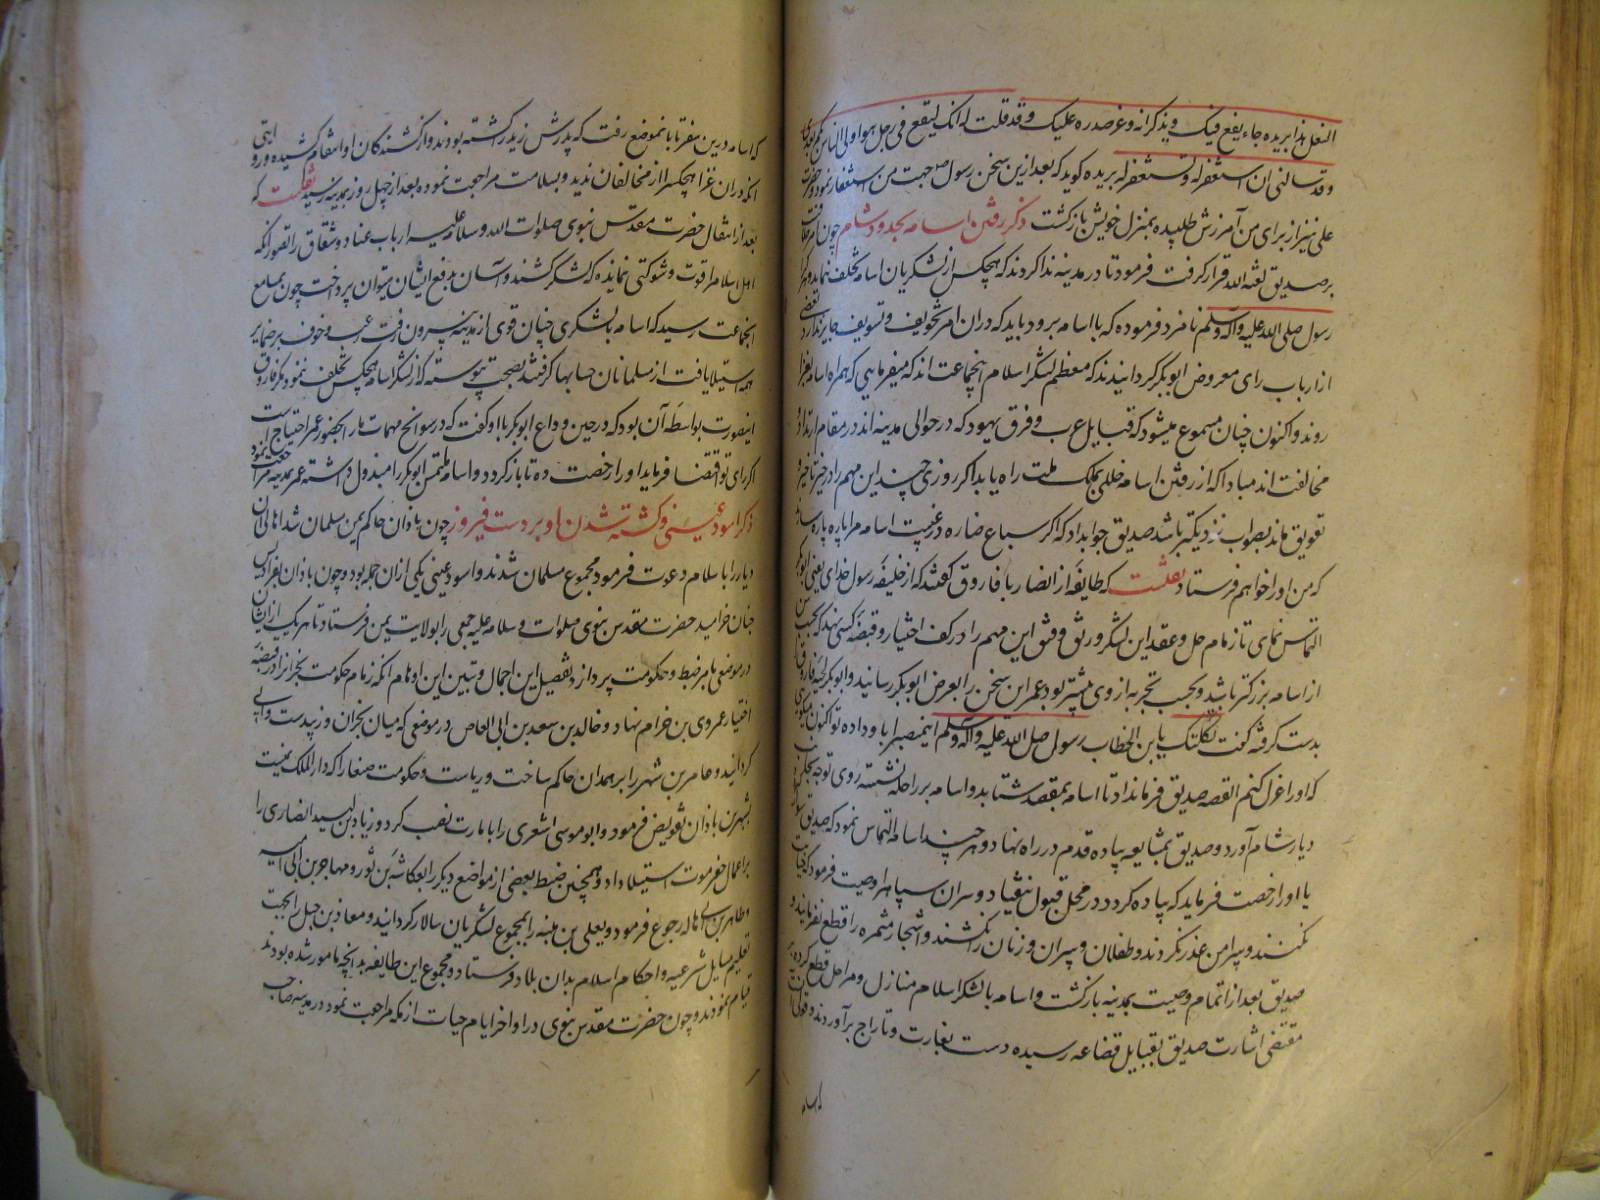 النعل هذا بریده جاء یقع فیک و یذکر انه وغر صدره علیک و قد قلت له انک لیقع فی رجل هو اولی الناس بکم بعدی
و قد سالنی ان استغفر له و تستغفر له بریده کوید که بعد ازین سخن رسول صلعم جهت من استغفار نمود و حضرت
علی نیز از برای من آمرزش طلبیده بمنزل خویش بازکشت ذکر رفتن اسامه بحدود شام چون امر خلافت
بر صدیق لعنه الله قرار کرفت فرمود تا در مدینه ندا کردند که هیچکس از لشکریان اسامه تخلف ننماید و هرکرا
رسول صلی الله علیه و اله وسلم نامزد فرموده که با اسامه برود باید که دران امر تخویف و تسویف جایز ندارد بعضی
از ارباب رای معروض ابوبکر کردانیدند که معظم لشکر اسلام اینجماعت اند که میفرمایی که همراه اسامه بغزا
روند و اکنون چنان مسموع میشود که قبایل عرب و فرق یهود که در حوالی مدینه اند در مقام ارتداد و
مخالفت اند مبادا که از رفتن اسامه خللی بملک ملت راه یابد اکر روزی چند این مهم را در حیز تاخیر و
تعویق ماند بصواب نزدیکتر باشد صدیق جواب داد که اکر سباع ضاره در غیبت اسامه مرا پاره پاره سازند
که من او را خواهم فرستاد نقلست که طایفه از انصار با فاروق کفتند که از خلیفه رسول خدای یعنی ابوبکر
التماس نمای تا زمام حل و عقد این لشکر و رتق و فتق این مهم را در کف اختیار و قبضه کسی نهد که بحسب سن
از اسامه بزرکتر باشد و بحسب تجربه از وی بیشتر بود عمر این سخن را بعرض ابوبکر رسانید و ابوبکر لحیه فاروق را
بدست کرفته کفت ثکلتک یا بن الخطاب رسول صلی الله علیه و اله وسلم این منصب را باو داده تو اکنون میکویی
که او را عزل کنم القصه صدیق فرمان داد تا اسامه بمقصد شتابد و اسامه بر راحله نشسته روی توجه بجانب
دیار شام آورد و صدیق بمشایعه پیاده قدم در راه نهاد و هر چند اسامه التماس نمود که صدیق سوار شود
یا او را رخصت فرماید که پیاده کردد در محل قبول نیفتاد و سران سپاه را وصیت فرمود که خیانت
نکنند و پیرامن غدر نکردند و طفلان و پیران و زنان را نکشند و اشجار مثمره را قطع نفرمایند و
صدیق بعد از اتمام وصیت بمدینه بازکشت و اسامه با لشکر اسلام منازل و مراحل قطع کرده
مقتضی اشارت صدیق بقبایل قضاعه رسیده دست بغارت و تاراج برآوردند و قولی آن
که اسامه درین سفر تا بانموضع رفت که پدرش زید کشته بودند و از کشندکان او انتقام کشیده و رو
انکه دران غزا هیچکس را از مخالفان ندید و بسلامت مراجعت نموده بعد از چهل روز بمدینه رسید نقلست که
بعد از انتقال حضرت مقدس نبوی صلوات الله و سلامه علیه ارباب عناد و شقاق را تصور آنکه
اهل اسلام را قوت و شوکتی نمانده که لشکر کشند و آسان بدفع ایشان میتوان پرداخت چون بمسامع
انجماعت رسید که اسامه با لشکری چنان قوی از مدینه بیرون رفت رعب و خوف بر ضمایر
همه استیلا یافت از مسلمانان حسابها کرفتند بصحت پیوسته که از لشکر اسامه هیچکس تخلف ننمود مکر فاروق
اینصورت بواسطه آن بود که در حین وداع ابوبکر با او کفت که در سوانح مهمات ما را بحضور عمر احتیاج است
اکر رای تو اقتضا فرماید او را رخصت ده تا باز کردد و اسامه ملتمس ابوبکر را مبذول داشته عمر بمدینه مراجعت نمود
ذکر اسود عنسی و کشته شدن او بر دست فیروز چون باذان حاکم یمن مسلمان شد اهالی آن
دیار را باسلام دعوت فرمود مجموع مسلمان شدند و اسود عنسی یکی ازان جمله بود و چون باذان بفرادیس
جنان خرامید حضرت مقدس نبوی صلوات و سلامه علیه جمعی را بولایت یمن فرستاد تا هر یک از ایشان
در موضعی بامر ضبط و حکومت پردازد تفصیل این اجمال و تبیین این اوهام انکه زمام حکومت نجران را در قبضه
اختیار عمرو بن حزام نهاد و خالد بن سعد بن ابی العاص در موضعی که میان نجران و زبید ست والی
کردانید و عامر بن شهر را بر همدان حاکم ساخت و ریاست و حکومت صنعا را که دار الملک یمنست
بشهر بن باذان تفویض فرمود و ابو موسی اشعری را بامارت نصب کرد و زیاد بن لبید انصاری را
بر اعمال حضرموت استیلا داد و همچنین ضبط بعضی از مواضع دیکر را بعکاشه بن ثور و مهاجر بن ابی امیه
و طاهر بن ابی هاله رجوع فرمود و یعلی بن منبه را بمجموع لشکریان سالار کردانید و معاذ بن جبل را بجهت
تعلیم مسایل شرعیه و احکام اسلام بدان بلاد فرستاد و مجموع این طایفه بدانچه مامور شده بودند
قیام نمودند و چون حضرت مقدس نبوی در اواخر ایام حیات از مکه مراجعت نمود در مدینه صاحب